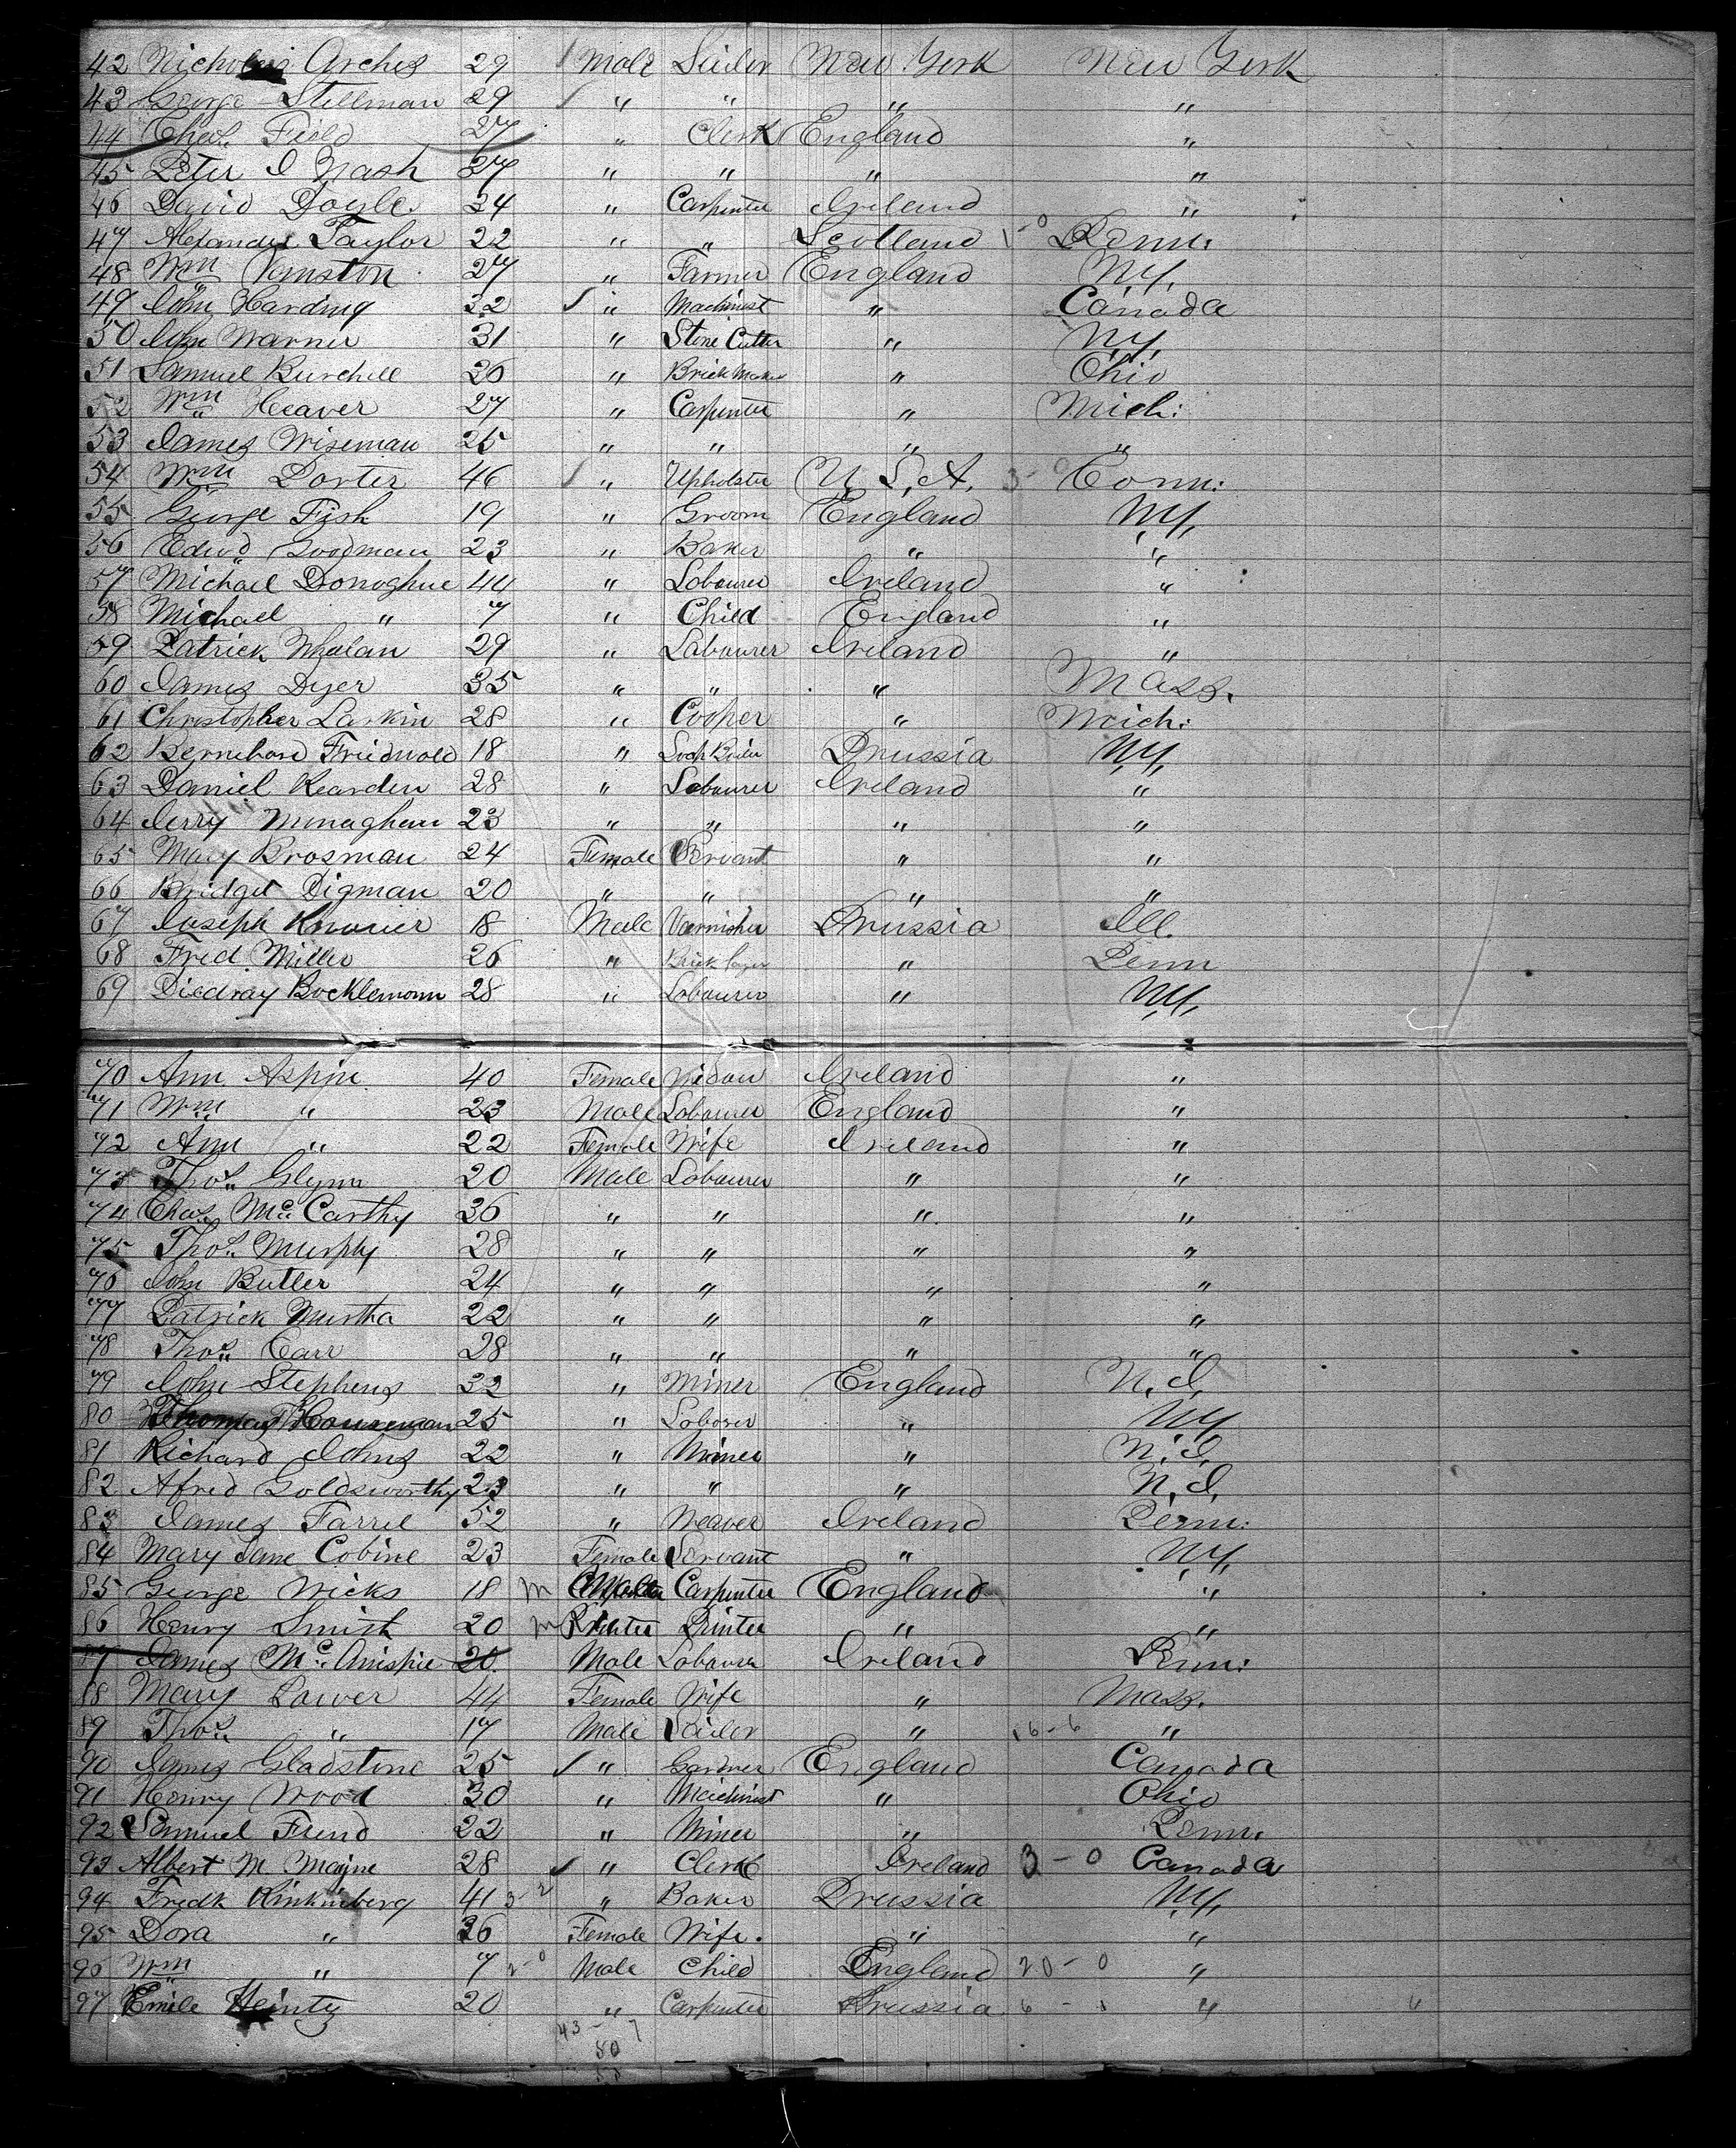 42 Nicholas Arches 29 Male Sailor New York New York
43 George Stillman 29 " " " "
44 Chas. Field 27 " Clerk England "
45 Peter I Nash 27 " " " "
46 David Doyle 24 " Carpenter Ireland "
47 Alexander Taylor 22 " " Scotland Penn.
48 Wm 27 " Farmer England N.Y.
49 John Harding 32 " Machinist " Canada
50 John Warner 31 " Stone Cutter " N.Y.
51 Samuel Burchell 26 " Brick Maker " Ohio
52 Wm Heaver 27 " Carpenter " Mich:
53 James Wiseman 25 " " " "
54 Wm Porter 46 " Upholster U.S.A. Conn:
55 George Fish 19 " Groom England N.Y.
56 Edwd Goodman 23 " Baker " "
57 Michael Donoghue 44 " Labourer Ireland "
58 Michael " 7 " Child England "
59 Patrick Whalan 29 " Labourer Ireland "
60 James Dyer 35 " " " Mass.
61 Christopher Larkin 28 " Cooper " Mich:
62 Bernhard Friedwald 18 " Soap Boiler Prussia N.Y.
63 Daniel Rearden 28 " Labourer Ireland "
64 Jerry Monaghan 23 " " " "
65 Mary Brosman 24 Female Servant " "
66 Bridget Digman 20 " " " "
67 Joseph 18 Male Varnisher Prussia Ill.
68 Fred Miller 26 " Brick layer " Penn
69 Diedray Bocklemann 28 " Labourer " N.Y.
70 Ann Aspin 40 Female Widow Ireland "
71 Wm " 23 Male Labourer England "
72 Ann " 22 Female Wife Ireland "
73 Thos. Glynn 20 Male Labourer " "
74 Chas. Mc. Carthy 36 " " " "
75 Thos. Murphy 28 " " " "
76 John Butler 24 " " " "
77 Patrick Murtha 22 " " " "
78 Thos. Carr 28 " " " "
79 John Stephens 32 " Miner England N.J.
80 Thomas Houseman 25 " Laborer " N.Y.
81 Richard Johns 22 " Miner " N.J.
82 Afred Goldsworthy 23 " " " N.J.
83 James Farrel 52 " Weaver Ireland Penn:
84 Mary Jane Cobine 23 Female Servant " N.Y.
85 George Wicks 18 m Carpenter England "
86 Henry Smith 20 m Printer Printer " "
87 James Mc. 20 Male Labourer Ireland Penn:
88 Mary Lawer 44 Female Wife " Mass.
89 Thos. " 17 Male Sailor " 6-6 "
90 James Gladstone 25 " Gardner England Canada
91 Henry Wood 30 " Machinist " Ohio
92 Samuel Frend 22 " Miner " Penn.
93 Albert M. Mayne 28 " Clerk Ireland 3-0 Canada
94 Fredk Kinkinberg 41 " Baker Prussia N.Y.
95 Dora " 36 Female Wife. " "
96 Wm " 7 2-0 Male Child England 20-0 "
97 Emile Heintz 20 " Carpenter Prussia "
43-7
80